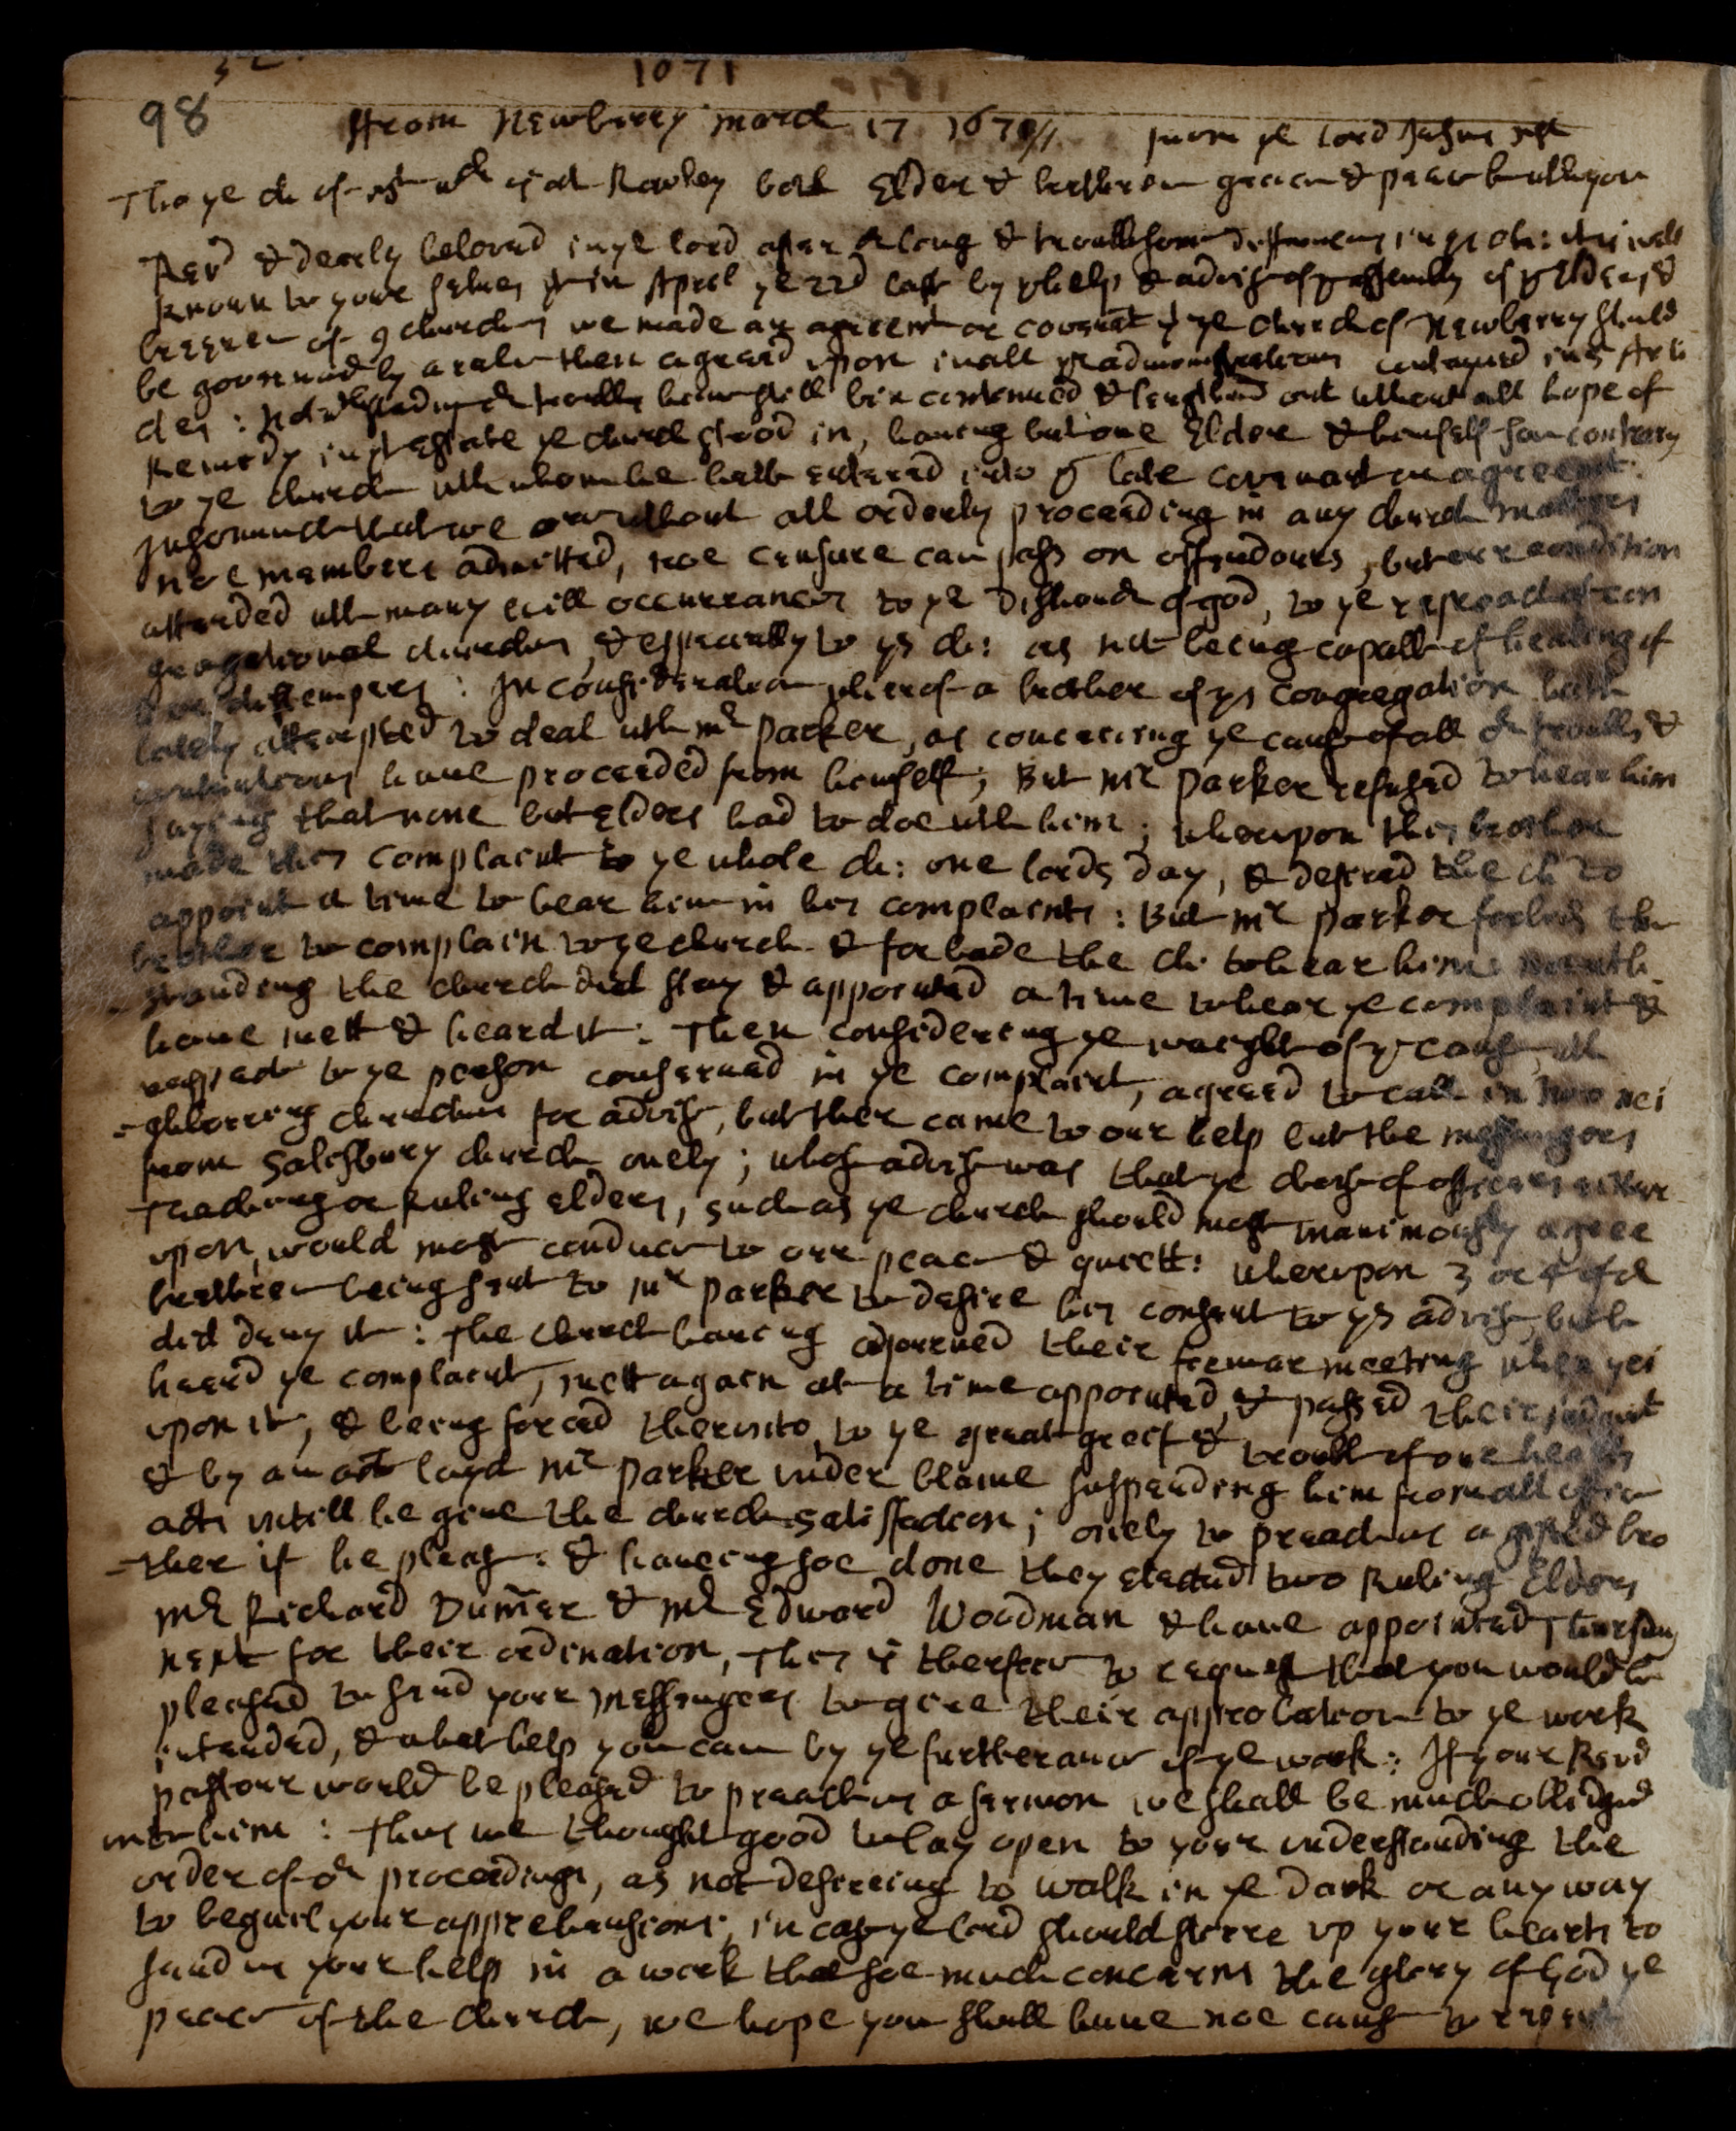 1671
98
ffrom Newberry march 17 1670/1 from ye Lord Jesus
Tho ye ch of at Rowley both Elder & bretheren grace & peace be with you
Revd & dearly beloved in ye lord after a long & troublsom differences in ch: it is well
known to your selves yt in Aprel ye 22d last by ye help & advise of assembly of ye Elders &
of 9 churches we made an agreemt or covenat yt ye church of Newberry should
be governed by a rule then agreed upon in all administrations contayned in 5 Arti
cles: notwthstanding or troubles have still bin continued & lengthned out without all hope of
Remedy in yt estate ye church stood in, having but one Elder & himself soe contrary
to ye church with whom he hath entered into ys late covenant or agreemt.
Insomuch that we are without all orderly proceeding in any church matters
noe members admitted, noe censure can pass on offendours, but our condition
attended with many evill occurrances to ye dishonor of god, to ye reproach of con
gregational churches, & especially to ys ch: as not being capable of healing of
distempers: In consideration wherof a brother of ys congregation hath
lately attempted to deal with mr Parker, as concerning ye cause of all or troubls &
contentions have proceeded from himself; But mr Parker refused to hear him
saying that none but Elders had to doe with him; wherupon this brother
made this complaint to ye whole ch: one lords day, & desired the ch to
appoint a time to hear him in his complaints: But mr Parker forbids the
brother to complain to ye church & forbade the ch to hear him: notwith
-standing the church did stay & appointed a time to hear ye complaint &
have mett & heard it: Then considering ye waight of ye cause with
respect to ye person conserned in ye complaint, agreed to call in two nei
-ghborring churches for advise, but ther came to our help but the messengers
from Salesbury church onely; whose advise was that ye choise of officers either
Teaching or Ruling elders, such as ye church should most unanimously agree
upon, would most conduce to our peace & quiett: wherupon 3 or 4 of ye
bretheren being sent to mr Parker to desire his consent to ys advise, but he
did deny it: The church having adjorned their former meeting when yei
heard ye complaint, mett again at a time appointed, & passed their judgmt
upon it, & being forced therunto, to ye great greif & trouble of our hearts
& by an act layd mr Parker under blame suspending him from all office
acts untill he give the church satisfaction; onely to preach as a gifted bro
-ther if he please: & haveing soe done they elected two Ruling Elders
mr Richard Dumer & mr Edward Woodman & have appointed Thursday
next for their ordination, This is therfore to request that you would be
pleased to send your messengers to give their approbation to ye work
intended, & what help you can by ye furtherance of ye work: If your Revd
pastour would be pleased to preach us a sermon we shall be much obliedged
unto him: Thus we thought good to lay open to your understanding the
order of or proceedings, as not desireing to walk in ye dark or any way
to beguil your apprehensions, in case ye lord should stirre up your hearts to
send us your help in a work that soe much concerns the glory of God ye
peace of the church, we hope you shall have noe cause to repent